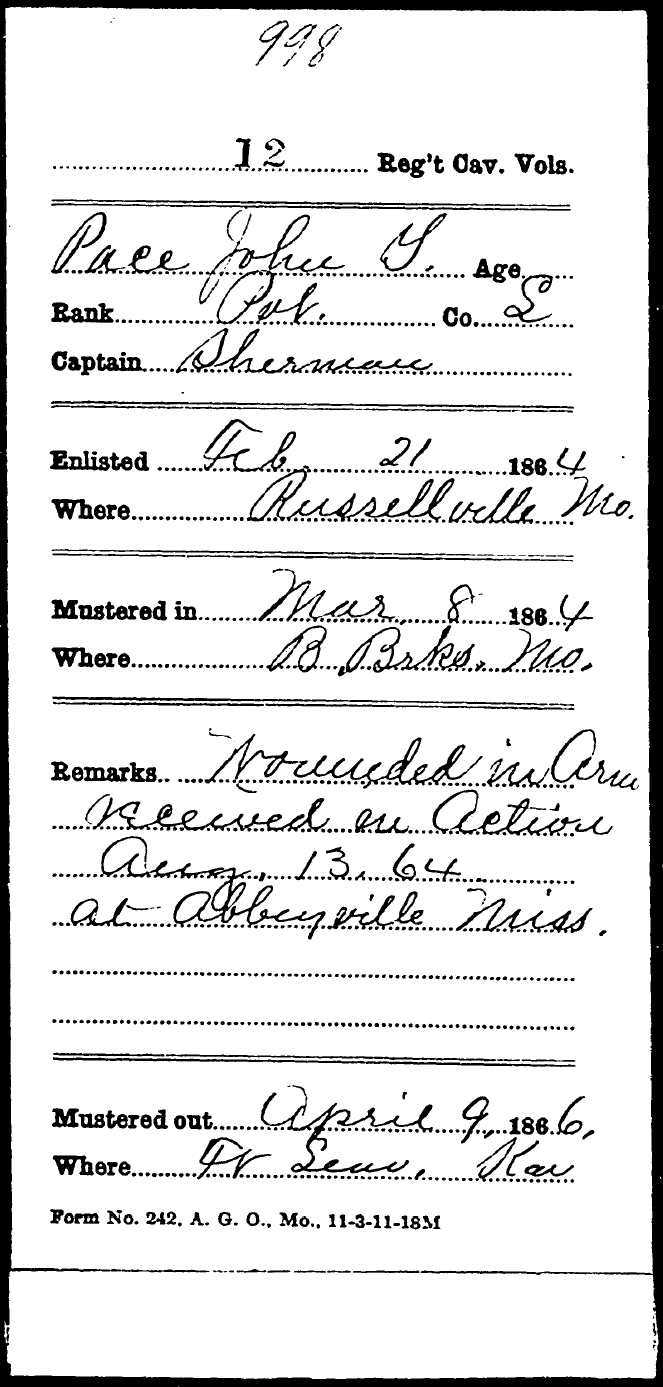 998
12 Reg't Cav. Vols.
Pace John Y. Age
Rank Pvt. Co. L
Captain Sherman
Enlisted Feb. 21 1864
Where Russellville Mo.
Mustered in Mar. 8 1864
Where B. Brks. Mo.
Remarks Wounded in Arm
received in Action
Aug. 13. 64
at Abbeyville Miss.
Mustered out April 9, 1866.
Where Ft Leav. Kan
Form No. 242, A. G. O., Mo., 11-3-11-18M